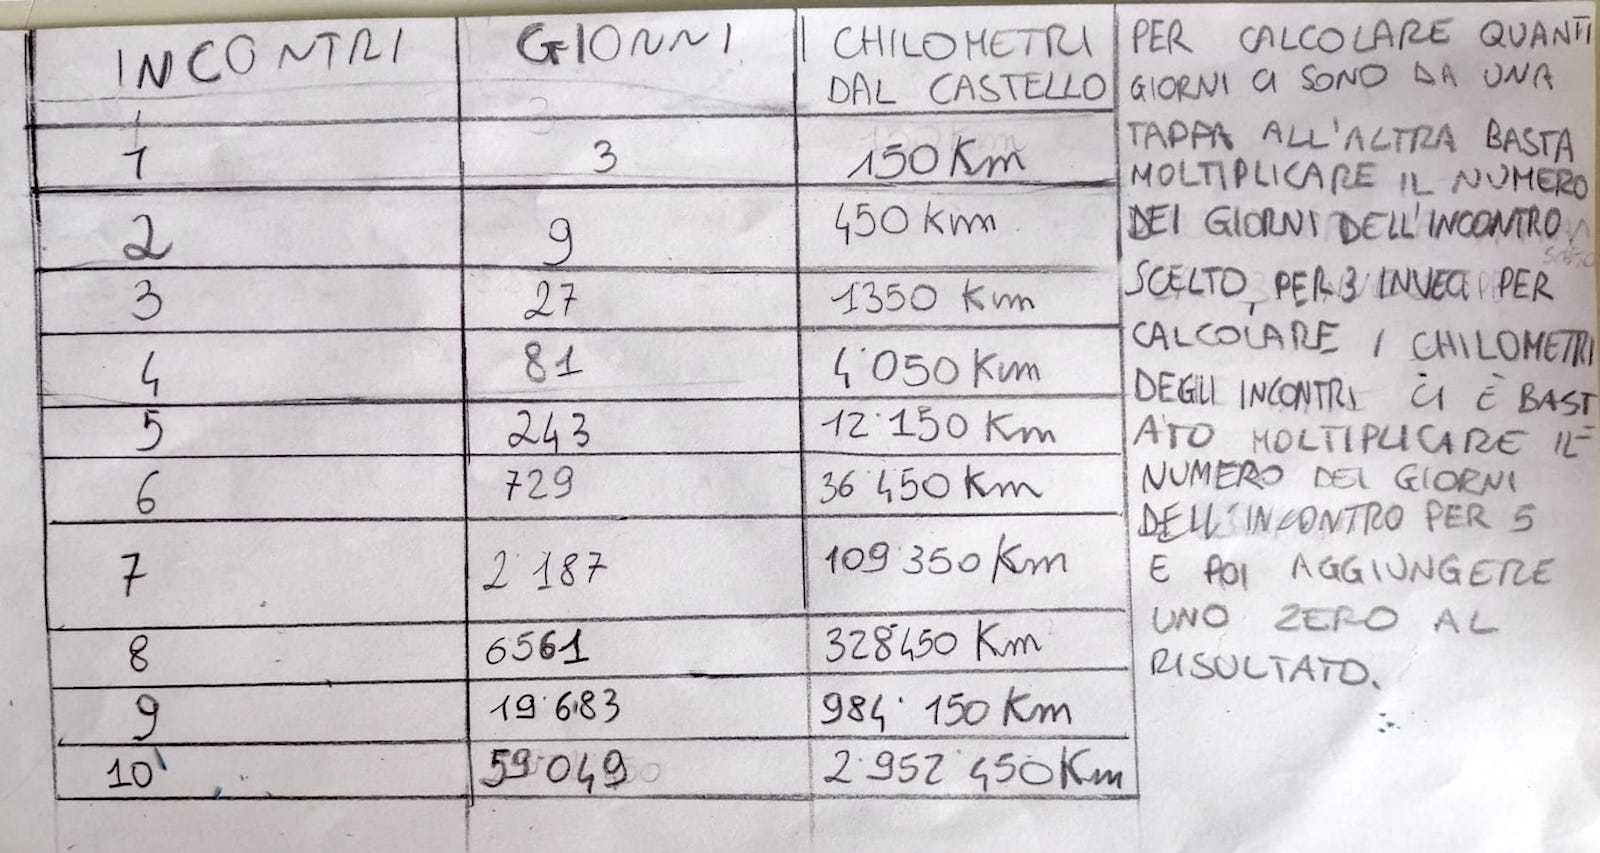 INCONTRI GIONNI CHILOMETRI
DAL CASTELLO
1 3 150 Km
2 9 450 Km
3 27 1350 Km
4 81 4˙050 Km
5 243 12˙150 Km
6 729 36˙450 Km
7 2˙187 109˙350 Km
8 6561 328450 Km
9 19˙683 984˙150 Km
10 59˙049 2˙952˙450 Km
PER CALCOLARE QUANTI
GIORNI CI SONO DA UNA
TAPPA ALL'ALTRA BASTA
MOLTIPLICARE IL NUMERO
DEI GIORNI DELL'INCONTRO
SCELTO, PER 3 INVECI PER
CALCOLARE I CHILOMETRI
DEGLI INCONTRI CI È BAST
ATO MOLTIPLICARE IL
NUMERO DEI GIORNI
DELL'INCONTRO PER 5
E POI AGGIUNGERE
UNO ZERO AL
RISULTATO.